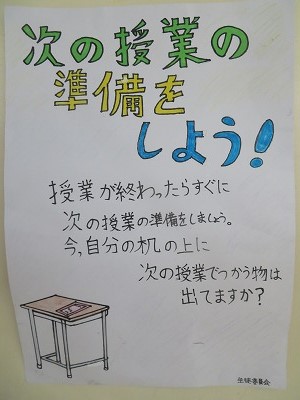 次の授業の
準備を
しよう!
授業が終わったらすぐに
次の授業の準備をしましょう。
今、自分の机の上に
次の授業でつかう物は
出てますか?